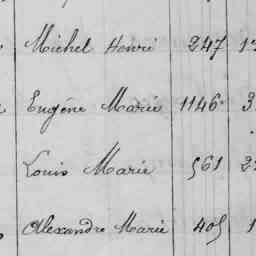 Michel Henri 247
Eugène Marie 1146
Louis Marie 561
Alexandre Marie 405